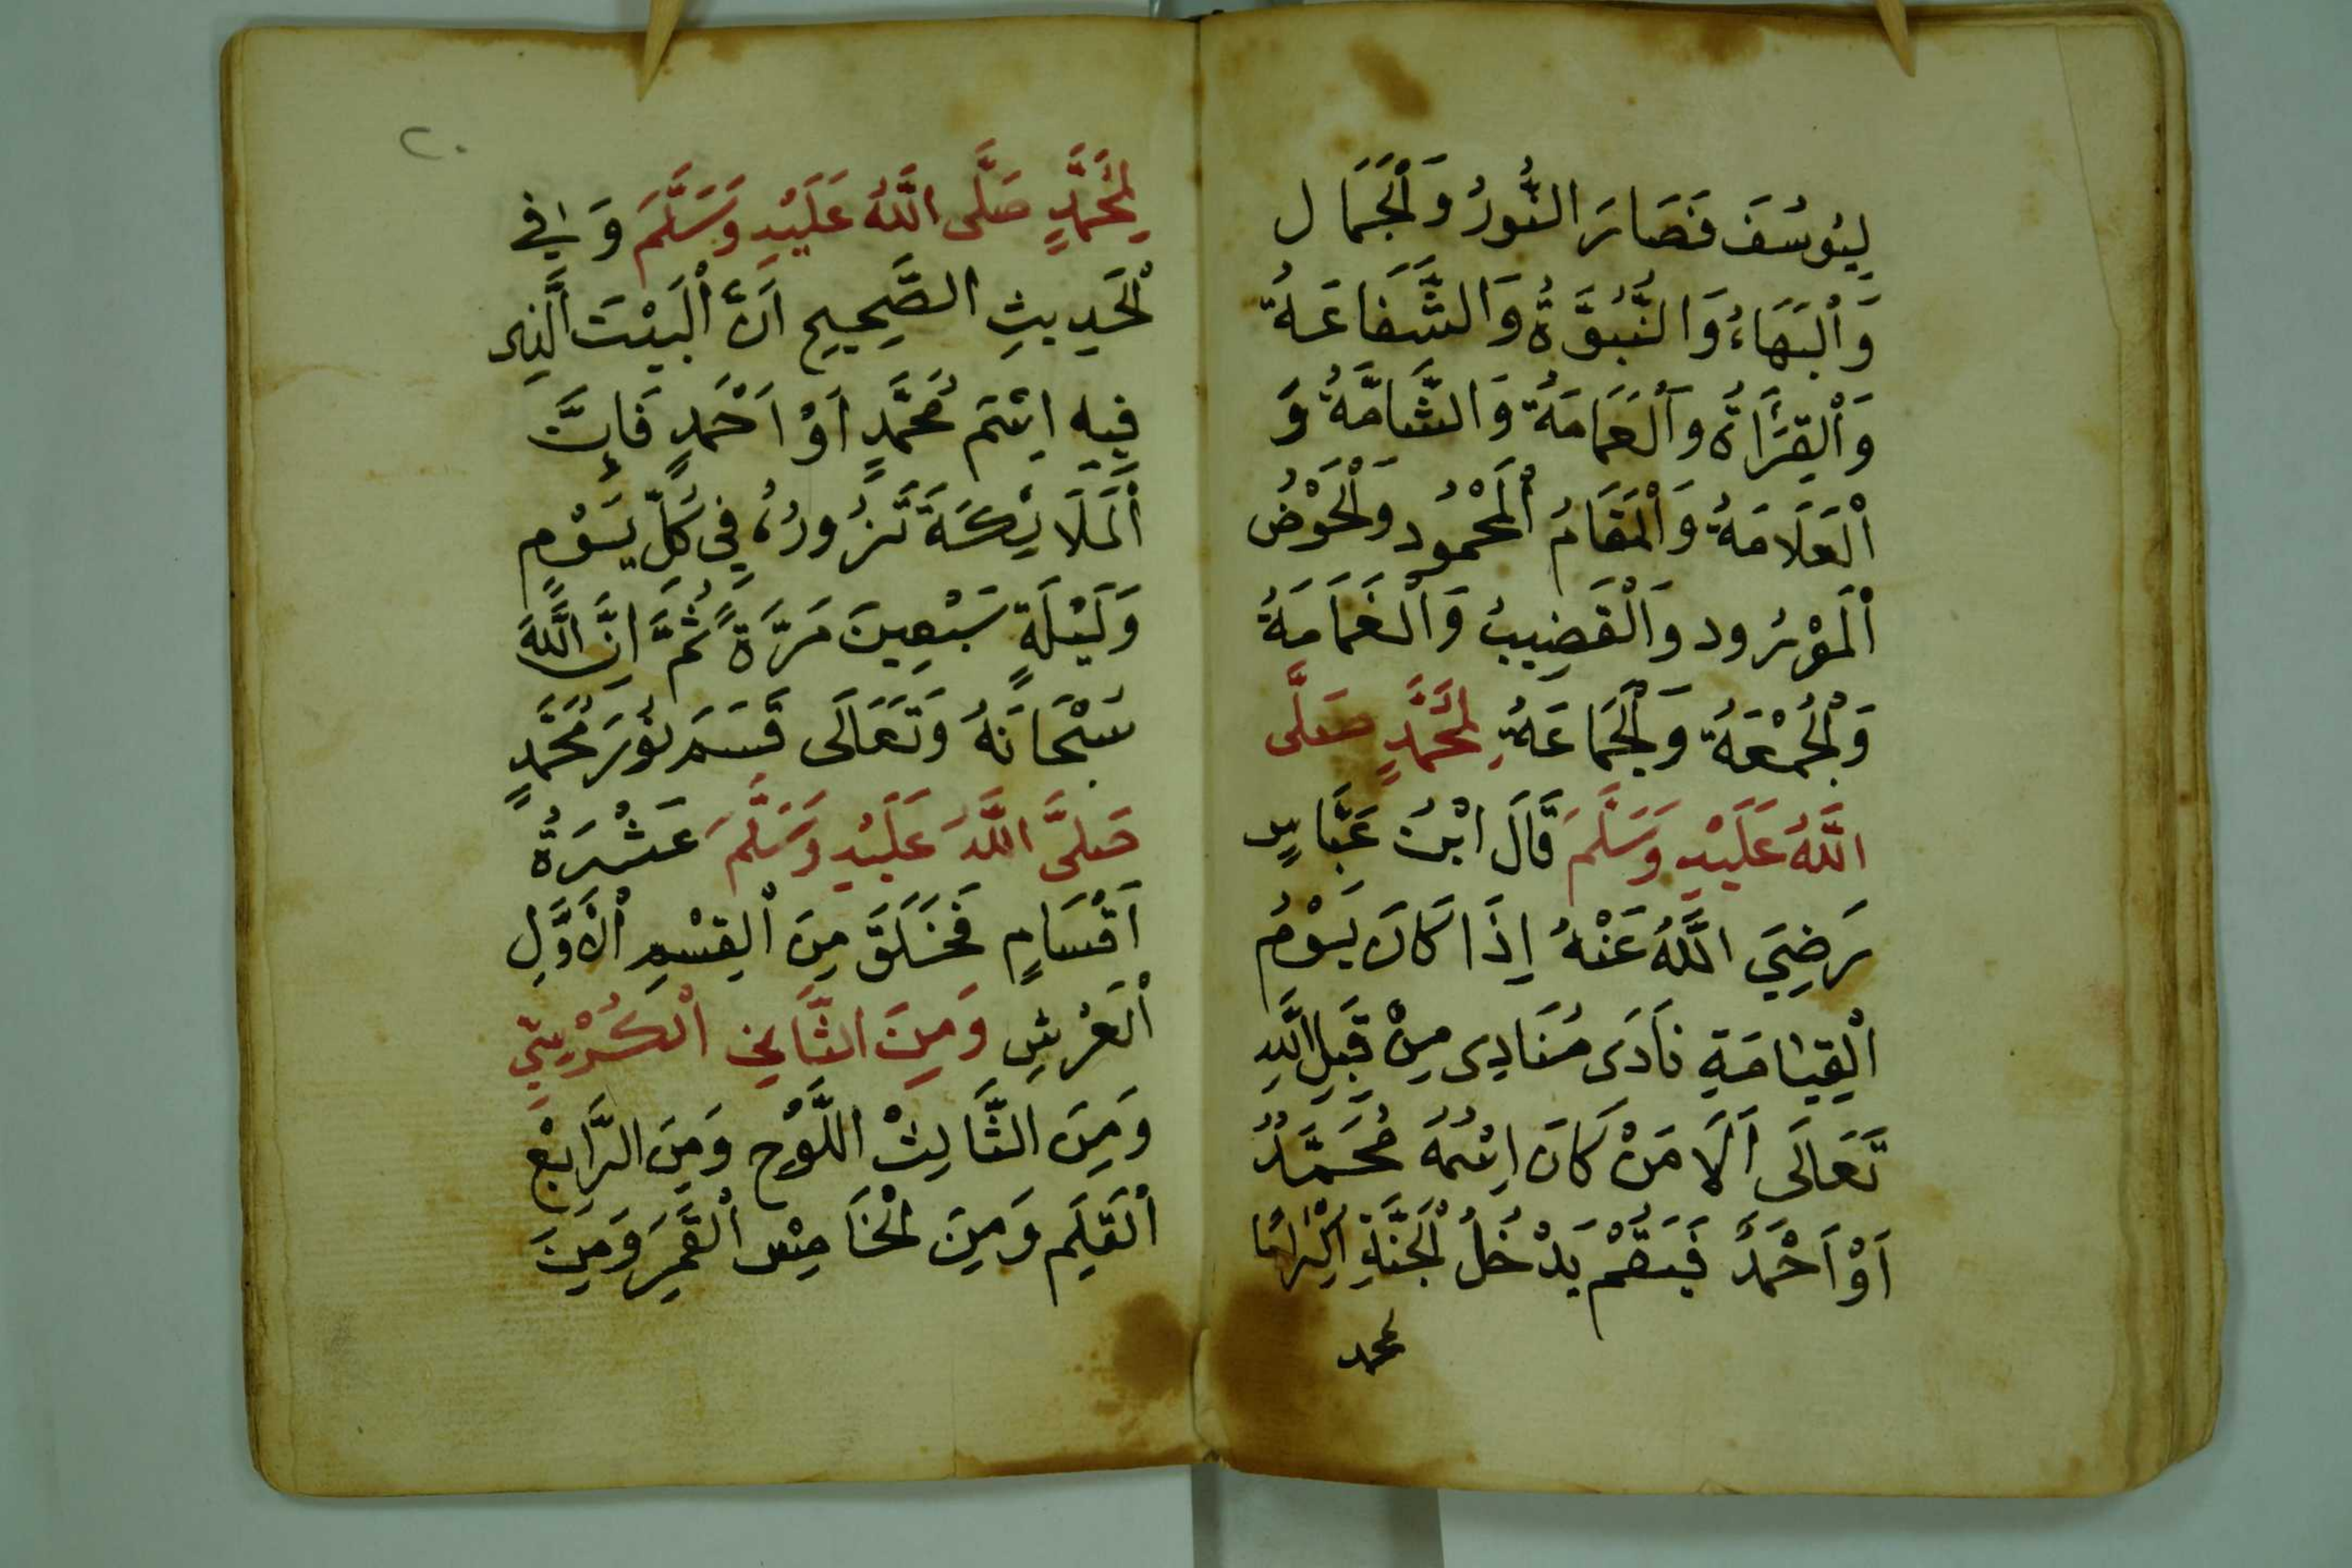 لِيُوسُفَ فَصَارَ النُّورُ وَالْجَمَال
وَالْبَهَاءُ وَالنُّبُوَّةُ وَالشَّفَاعَةُ
وَالْقِرَأَةُ وَالْعَمَامَةُ وَالشَّامَّةُ وَ
الْعَلَامَةُ وَالْمَقَامُ الْمَحْمُود وَالْحَوْضُ
الْمَوْرُود وَالْقَضِيبُ وَالْغَمَامَةُ
وَالْجُمْعَةُ وَالْجَمَاعَةُ لِمُحَمَّدٍ صَلَّى
اللَّهُ عَلَيْهِ وَسَلَّمَ قَالَ ابْنُ عَبَّاسٍ
رَضِيَ اللَّهُ عَنْهُ إِذَا كَانَ يَوْمُ
الْقِيَامَةِ نَادَى مُنَادِى مِنْ قِبَلِ اللَّهِ
تَعَالَى أَلَا مَنْ كَانَ اِسْمُهُ مُحَمَّدٌ
اَوْ اَحْمَدُ فَيَقُمْ يَدْخُلُ الْجَنَّةِ اِكْرَامًا
لمحمد
٢٠
لِمُحَمَّدٍ صَلَّى اللَّهُ عَلَيْهِ وَسَلَّمَ وَفِي
الْحَدِيثِ الصَّحِيحِ اَنَّ الْبَيْتَ الَّذِى
فِيهِ اِسْمَ مُحَمَّدٍ اَوْ اَحْمَدٍ فَإِنَّ
الْمَلَايِكَةَ تَزُورُهُ فِي كُلِّ يَوْمٍ
وَلَيْلَةٍ سَبْعِينَ مَرَّةً ثُمَّ اِنَّ اللَّهَ
سُبْحَانَهُ وَتَعَالَى قَسَمَ نُورَ مُحَمَّدٍ
صَلَّى اللَّهُ عَلَيْهِ وَسَلَّمَ عَشْرَةُ
اَقْسَامٍ فَخَلَقَ مِنَ الْقِسْمِ الْأَوَّلِ
الْعَرْشِ وَمِنَ الثَّانِي الْكُرْسِيِّ
وَمِنَ الثَّالِثْ اللَّوْح وَمِنَ الرَّابِعْ
الْقَلَمِ وَمِنَ الْخَامِسْ الْقَمَرِ وَمِنَ